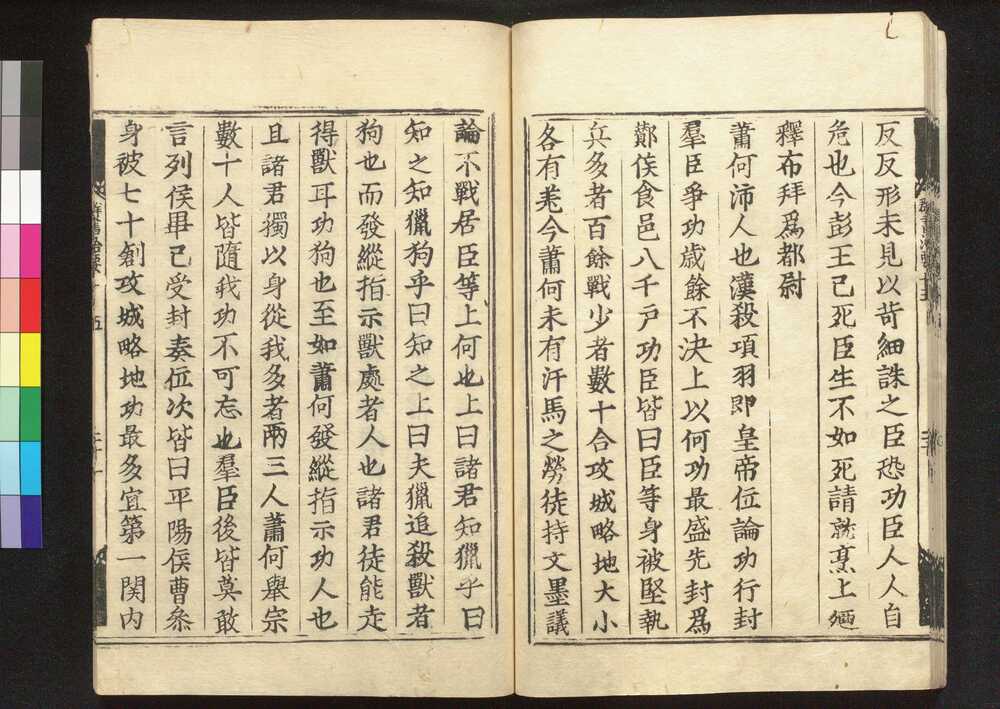 反反形未見以苛細誅之臣恐功臣人人自
危也今彭王已死臣生不如死請就烹上廼
釋布拜爲都尉
蕭何沛人也漢殺項羽即皇帝位論功行封
羣臣爭功歳餘不決上以何功最盛先封爲
酇侯食邑八千戸功臣皆曰臣等身被堅執
兵多者百餘戰少者數十合攻城略地大小
各有差今蕭何未有汗馬之勞徒持文墨議
論不戰居臣等上何也上曰諸君知獵乎曰
知之知獵狗乎曰知之上曰夫獵追殺獸者
狗也而發縱指示獸處者人也諸君徒能走
得獸耳功狗也至如蕭何發縱指示功人也
且諸君獨以身從我多者兩三人蕭何舉宗
數十人皆隨我功不可忘也羣臣後皆莫敢
言列侯畢已受封奏位次皆曰平陽侯曹叅
身被七十創攻城略地功最多宜第一関内